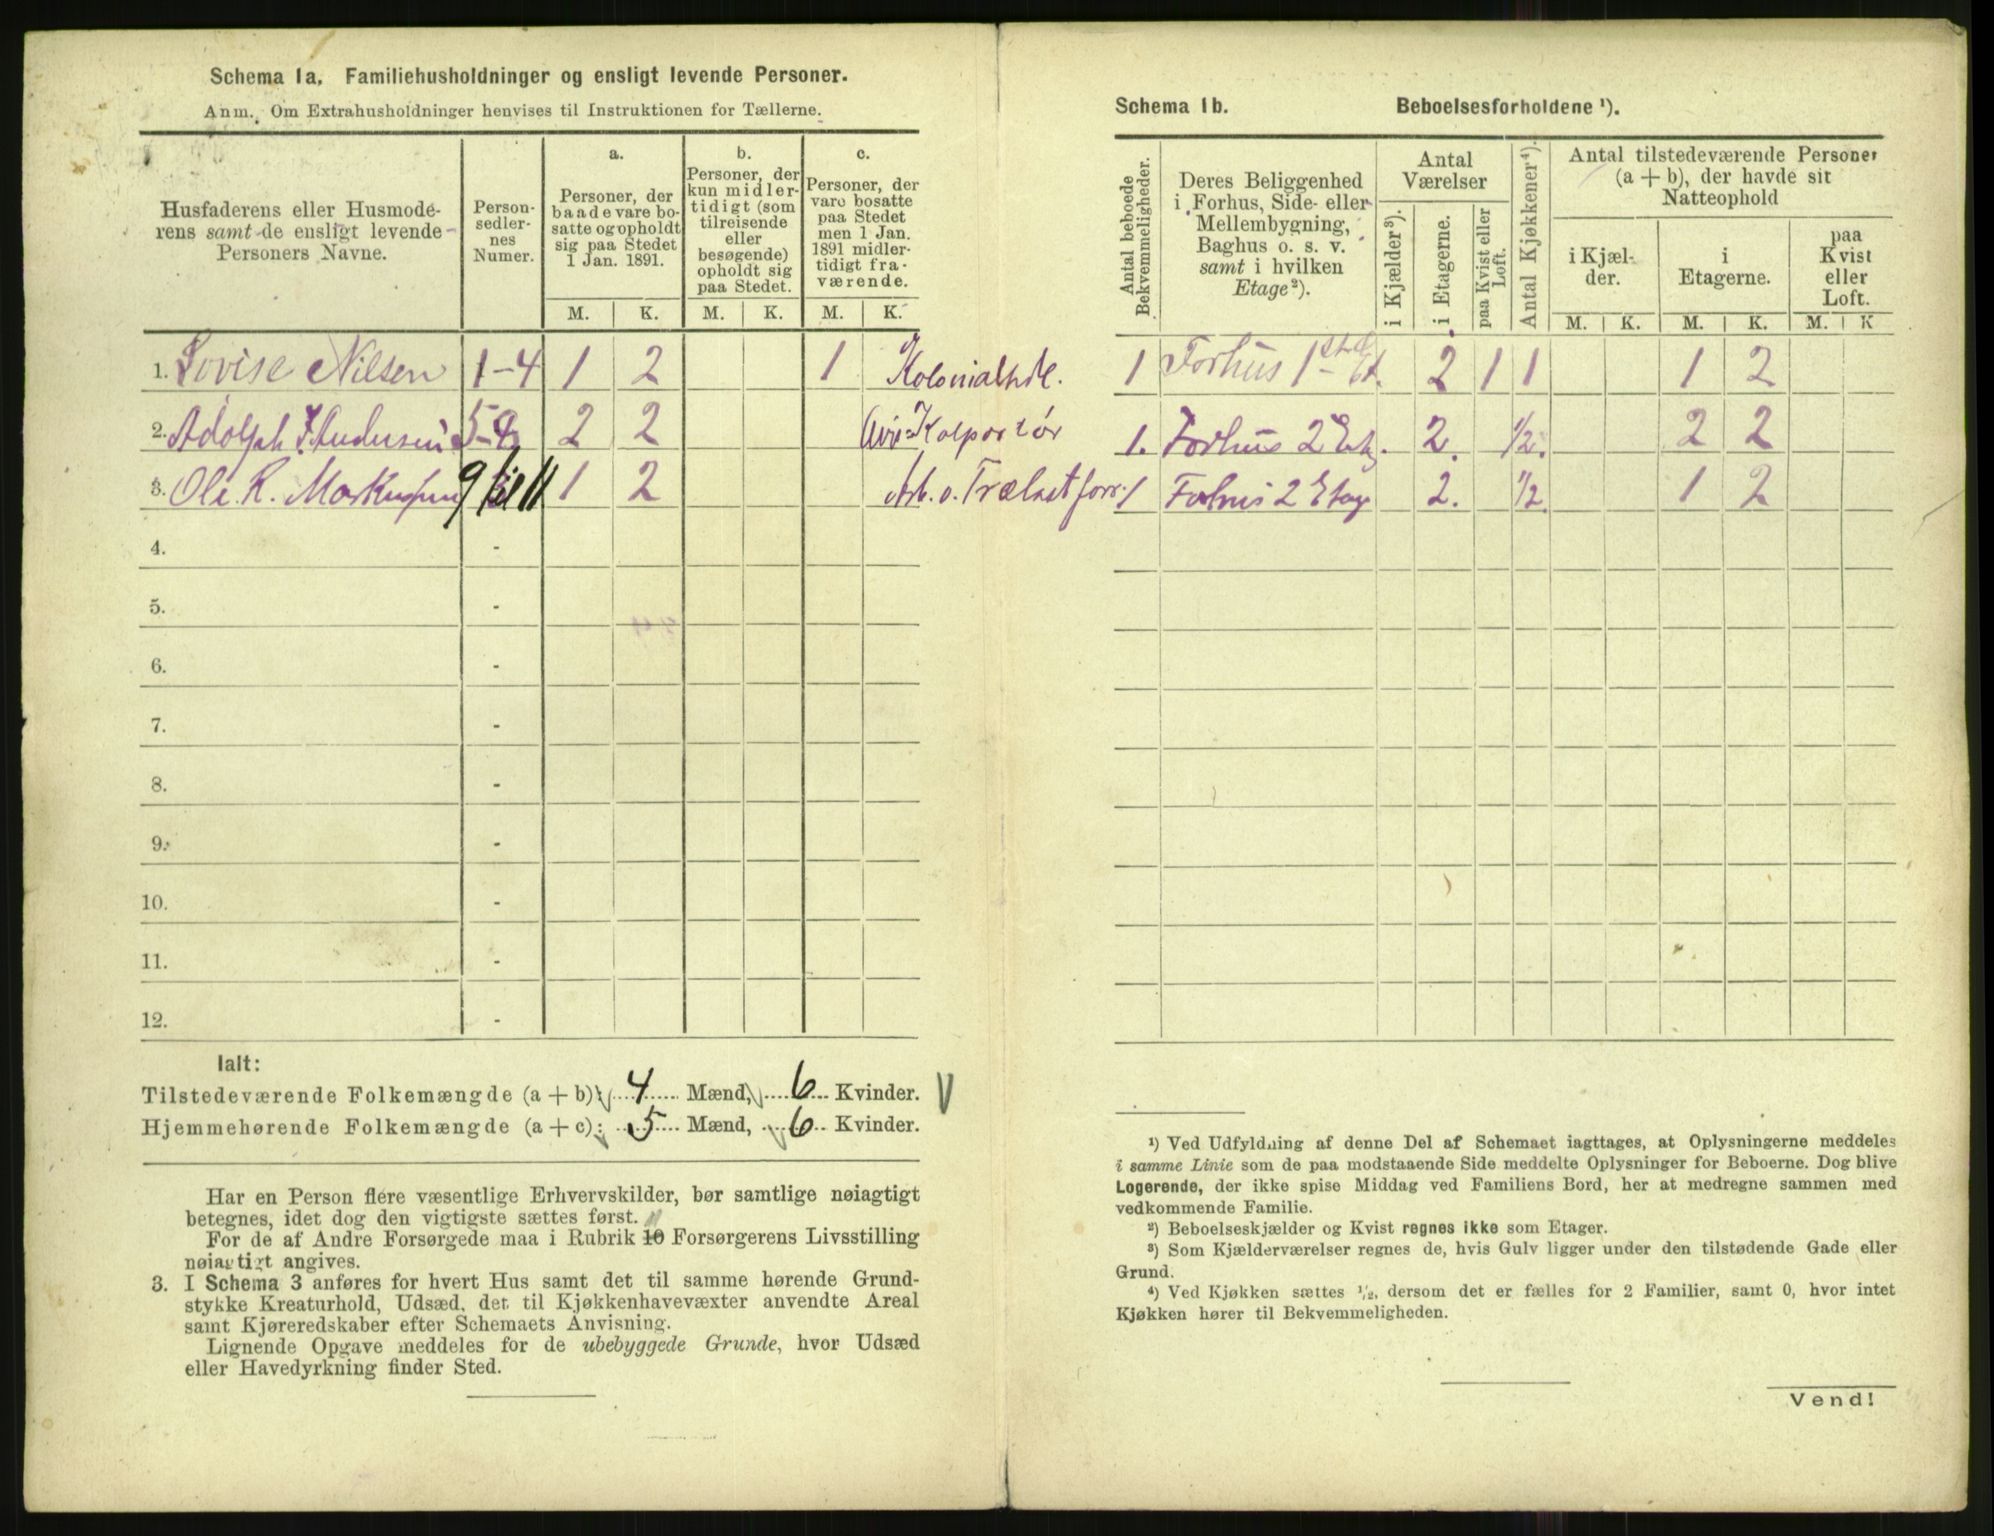 Schema 1a. Familiehusholdninger og ensligt levende Personer.
Anm. Om Extrahusholdninger henvises til Instruktionen for Tællerne.
Husfaderens eller Husmode-
rens samt de ensligt levende
Personers Navne.
Person-
sedler-
nes
Numer.
a.
Personer, der
baade vare bo-
satte og opholdt
sig paa Stedet
1 Jan. 1891.
b.
Personer, der
kun midler-
tidigt (som
tilreisende
eller
besøgende)
opholdt sig
paa Stedet.
c.
Personer, der
vare bosatte
paa Stedet
men 1 Jan.
1891 midler-
tidigt fra-
værende.
M. K. M. K. M. K.
1. Lovise Nilsen 1-4 1 2 1 Kolonialhdl.
2. Adolph J. Andersen 2 2 Kolportør
3. Ole R. Markussen 9 til 11 1 2 Arb. v. Trælastforr.
4. -
5. -
6. -
7. -
8. -
9. -
10. -
11. -
12. -
Ialt:
Tilstedeværende Folkemængde (a + b): 4 Mænd, 6 Kvinder.
Hjemmehørende Folkemængde (a + c): 5 Mænd, 6 Kvinder.
Har en Person flere væsentlige Erhvervskilder, bør samtlige nøiagtigt
betegnes, idet dog den vigtigste sættes først.
For de af Andre Forsørgede maa i Rubrik 10 Forsørgerens Livsstilling
nøiagtigt angives.
3. I Schema 3 anføres for hvert Hus samt det til samme hørende Grund-
stykke Kreaturhold, Udsæd, det til Kjøkkenhavevæxter anvendte Areal
samt Kjøreredskaber efter Schemaets Anvisning.
Lignende Opgave meddeles for de ubebyggede Grunde, hvor Udsæd
eller Havedyrkning finder Sted.
Schema 1b. Beboelsesforholdene ¹).
Antal beboede
Bekvemmeligheder.
Deres Beliggenhed
i Forhus, Side- eller
Mellembygning,
Baghus o. s. v.
samt i hvilken
Etage²).
Antal
Værelser
i Kjælder³).
i Etagerne.
paa Kvist eller
Loft.
Antal Kjøkkener⁴).
Antal tilstedeværende Personer
(a + b), der havde sit
Natteophold
i Kjæl-
der.
i
Etagerne.
paa
Kvist
eller
Loft.
M. K. M. K. M. K
1 Forhus 1ste Et. 2 1 1 1 2
1. Forhus 2 Etg. 2. 1/2. 2 2
1 Forhus 2 Etage 2. 1/2. 1 2
¹) Ved Udfyldning af denne Del af Schemaet iagttages, at Oplysningerne meddeles
i samme Linie som de paa modstaaende Side meddelte Oplysninger for Beboerne. Dog blive
Logerende, der ikke spise Middag ved Familiens Bord, her at medregne sammen med
vedkommende Familie.
²) Beboelseskjælder og Kvist regnes ikke som Etager.
³) Som Kjælderværelser regnes de, hvis Gulv ligger under den tilstødende Gade eller
Grund.
⁴) Ved Kjøkken sættes ½, dersom det er fælles for 2 Familier, samt 0, hvor intet
Kjøkken hører til Bekvemmeligheden.
Vend!